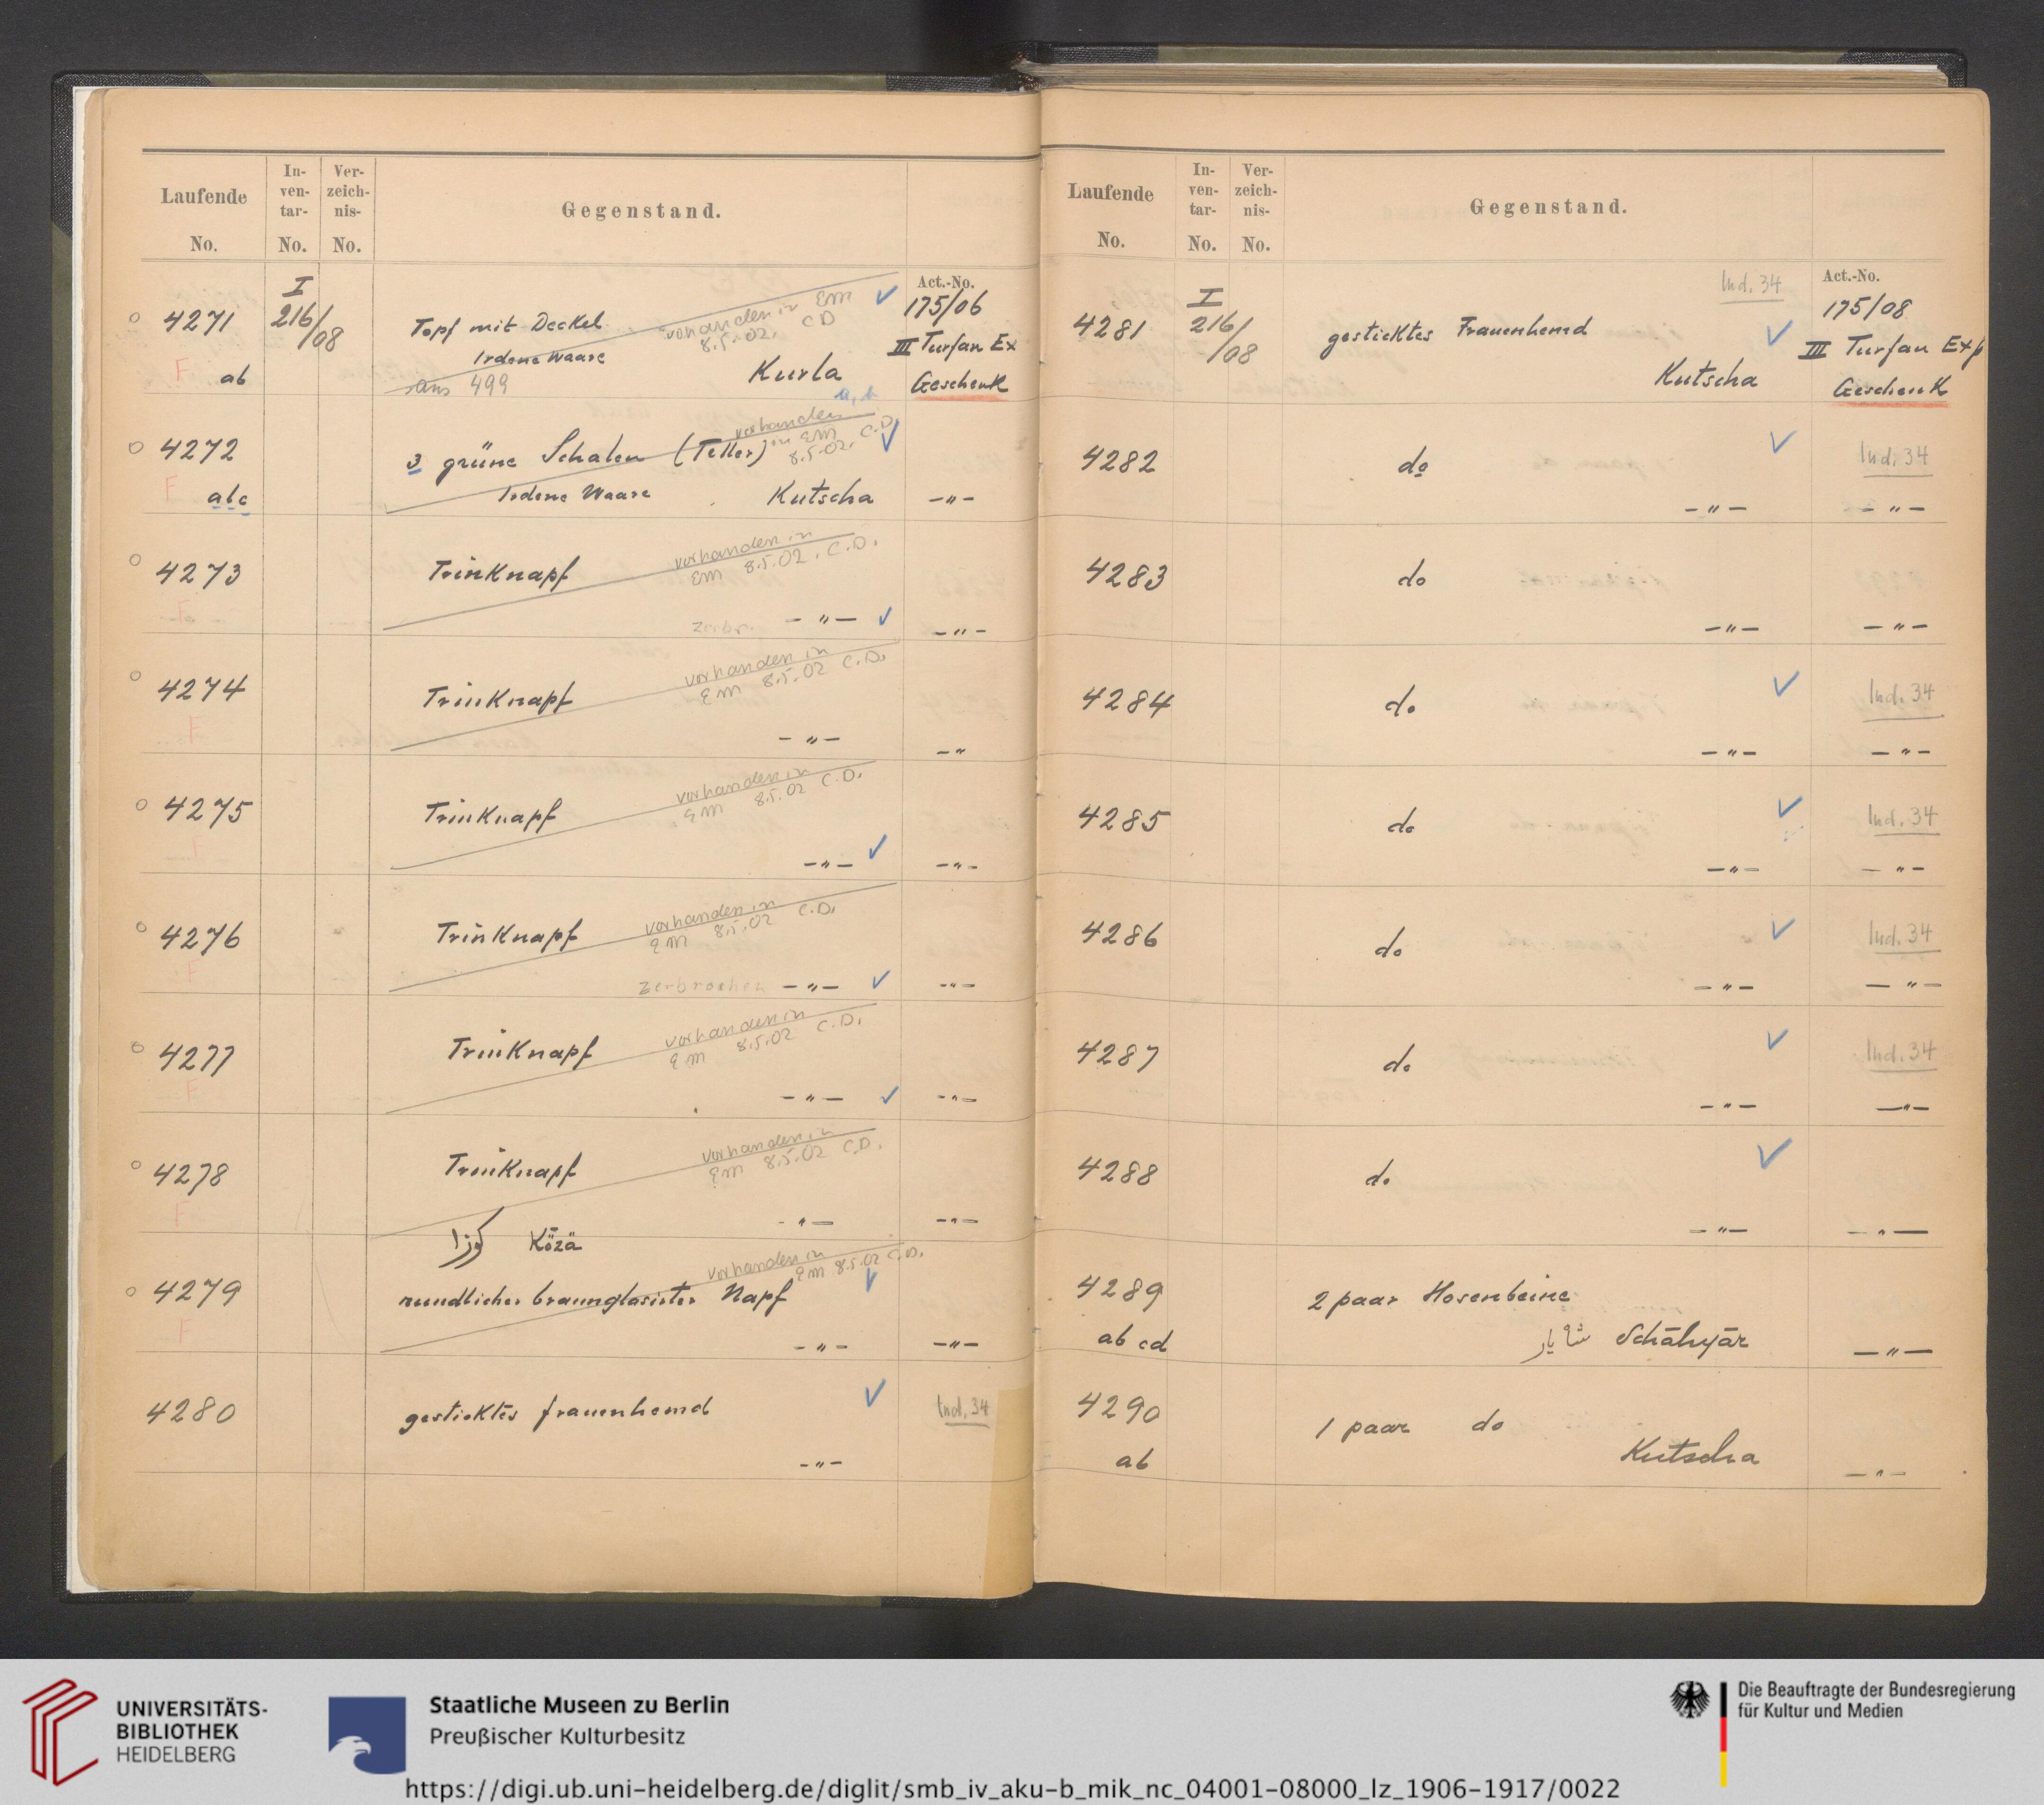 Laufende No.
In-ven-tar-No.
Ver-zeich-nis-No.
Gegenstand.
Act.-No.
4271
ab
I
216/08
Topf mit Deckel
Irdene Waare
aus 499
vorhanden in EM
8.5.02. CD
Kurla
175/06
III Turfan Ex
Geschenk
F
4272
abc
a, b
3 grüne Schalen (Teller)
vorhanden
in EM
8.5.02. C.D
Irdene Waare
Kutscha
-"-
F
4273
Trinknapf
vorhanden in
EM 8.5.02. C.D.
zerbr. -"-
-"-
F
4274
Trinknapf
vorhanden in
EM 8.5.02 C.D.
-"-
-"
F
4275
Trinknapf
vorhanden in
EM 8.5.02 C.D.
-"-
-"-
F
4276
Trinknapf
vorhanden in
EM 8.5.02 C.D.
zerbrochen -"-
-"-
F
4277
Trinknapf
vorhanden in
EM 8.5.02 C.D.
-"-
-"-
F
4278
Trinknapf
vorhanden in
EM 8.5.02 C.D.
-"-
-"-
F
كوزا Közä
4279
rundlicher braunglasirter Napf
vorhanden in
EM 8.5.02 C.D.
-"-
-"-
F
4280
gesticktes Frauenhemd
Ind. 34
-"-
Laufende No.
In-ven-tar-No.
Ver-zeich-nis-No.
Gegenstand.
Act.-No.
4281
I
216/08
gesticktes Frauenhemd
Ind. 34
Kutscha
175/08
III Turfan Exp
Geschenk
4282
do
Ind. 34
-"-
-"-
4283
do
-"-
-"-
4284
do
Ind. 34
-"-
-"-
4285
do
Ind. 34
-"-
-"-
4286
do
Ind. 34
-"-
-"-
4287
do
Ind. 34
-"-
-"-
4288
do
-"-
-"-
4289
ab cd
2 paar Hosenbeine
شاه يار Schāhyār
-"-
4290
ab
1 paar do
Kutscha
-"-
UNIVERSITÄTS-
BIBLIOTHEK
HEIDELBERG
Staatliche Museen zu Berlin
Preußischer Kulturbesitz
Die Beauftragte der Bundesregierung
für Kultur und Medien
https://digi.ub.uni-heidelberg.de/diglit/smb_iv_aku-b_mik_nc_04001-08000_lz_1906-1917/0022